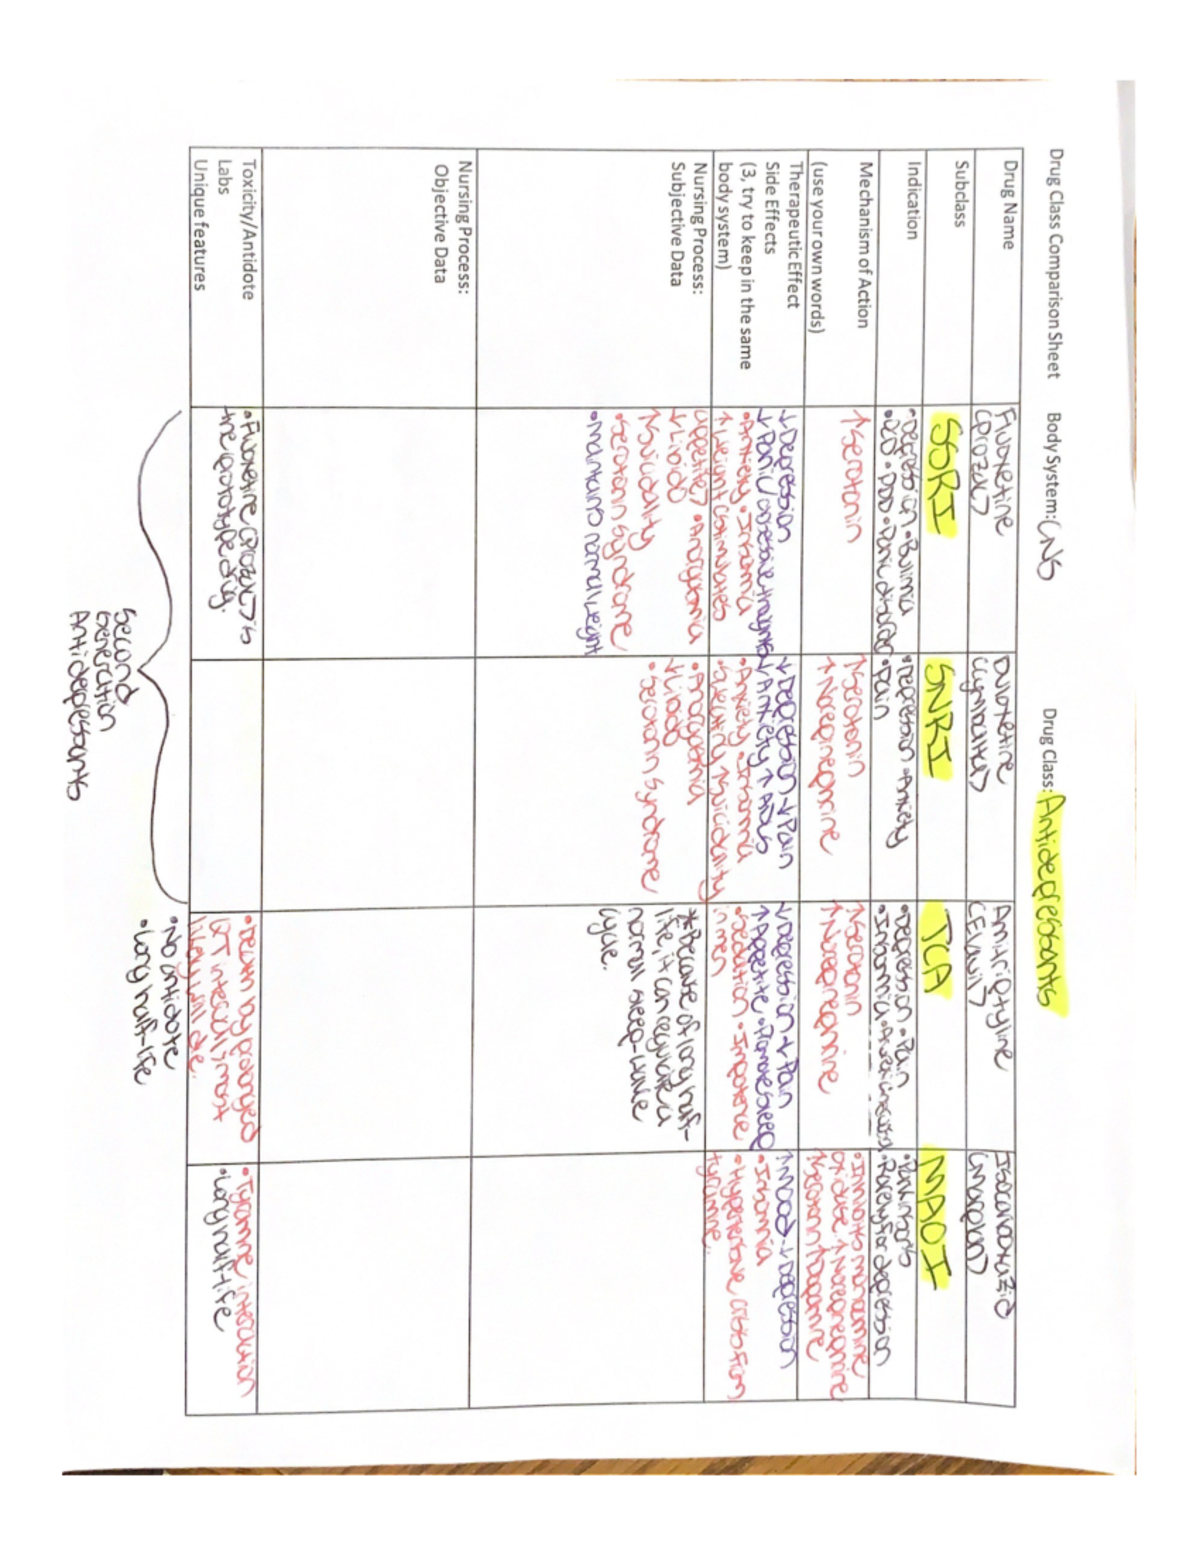 Drug Class Comparison Sheet Body System: CNS Drug Class: Antidepressants
Drug Name
Fluoxetine
(Prozac)
Duloxetine
(Cymbalta)
Amitriptyline
(Elavil)
Isocarboxazid
(Marplan)
Subclass
SSRI
SNRI
TCA
MAOI
Indication
•Depression •Bulimia
•OCD •PDD •Panic disorder
•Depression •Anxiety
•Pain
•Depression •Pain
•Insomnia
•Parkinson's
•Rarely for depression
Mechanism of Action
(use your own words)
↑Serotonin
↑Serotonin
↑Norepinephrine
↑Serotonin
↑Norepinephrine
•Inhibits monoamine
oxidase ↑Norepinephrine
↑Serotonin ↑Dopamine
Therapeutic Effect
Side Effects
(3, try to keep in the same
body system)
↓Depression
↓Panic/obsessive thoughts
•Anxiety •Insomnia
↑Weight (stimulates
appetite) •Anorgasmia
↓Libido
↑Suicidality
•Serotonin Syndrome
•Maintains normal weight
↓Depression ↓Pain
↓Anxiety ↑ADLs
•Anxiety •Insomnia
↑Suicidality
•Anorgasmia
↓Libido
•Serotonin Syndrome
↓Depression ↓Pain
↑Appetite •Promote sleep
•Sedation •Impotence
in men
*Because of long half-
life, it can regulate a
normal sleep-wake
cycle.
↑Mood ↓Depression
•Insomnia
•Hypertensive crisis from
tyramine.
Nursing Process:
Subjective Data
Nursing Process:
Objective Data
Toxicity/Antidote
Labs
Unique features
•Fluoxetine (Prozac) is
the prototype drug.
•Death by prolonged
QT interval; most
likely will die.
•No antidote
•Long half-life
•Tyramine interaction
•Long half-life
Second
Generation
Antidepressants